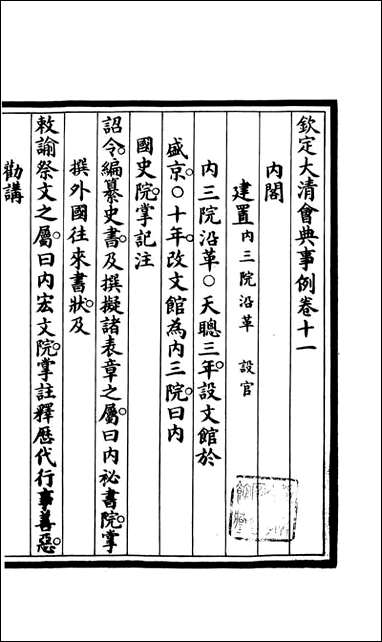 欽定大清會典事例卷十一
內閣
建置內三院沿革 設官
內三院沿革○天聰三年設文館於
盛京○十年改文館為內三院曰內
國史院掌記注
詔令編纂史書及撰擬諸表章之屬曰內祕書院掌
撰外國往來書狀及
敕諭祭文之屬曰內宏文院掌註釋歷代行事善惡
勸講